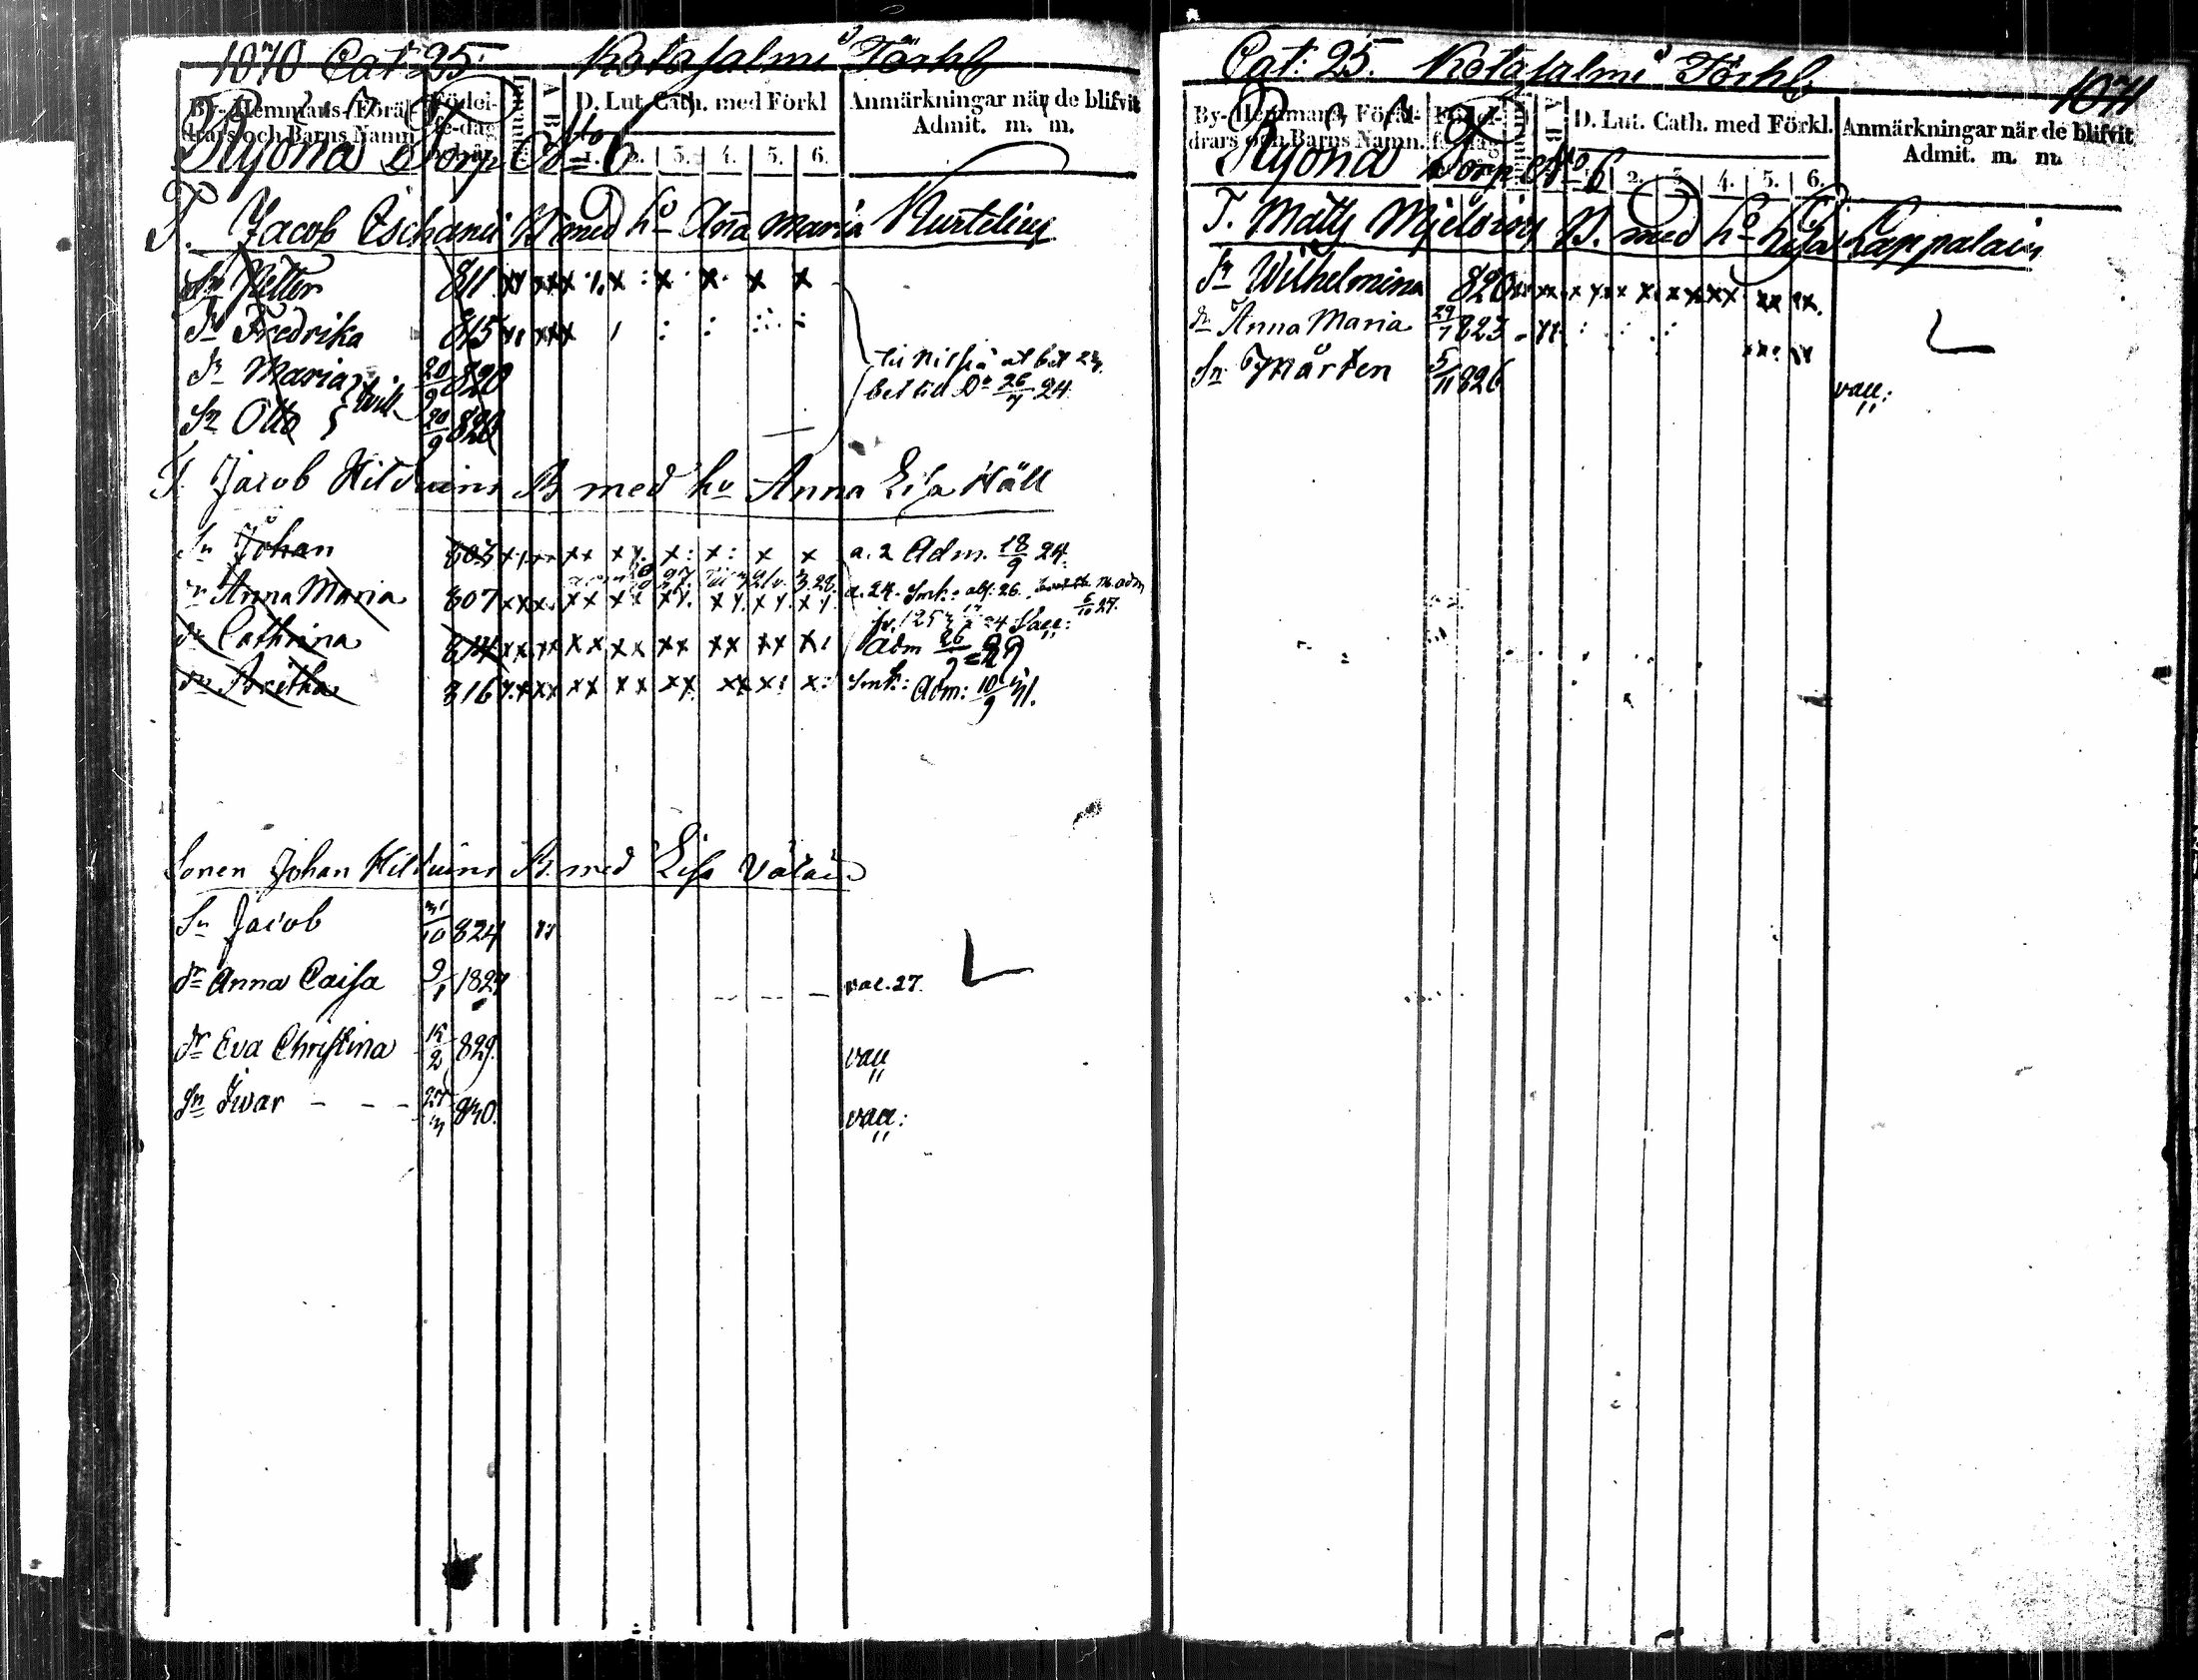 1070 Cat: 25. Kotasalmi Förhb
By- Hemmans- Föräl-
drars och Barns Namn.
A B
D. Lut. Cath. med Förkl
1. 2. 3. 4. 5. 6.
Anmärkningar när de blifvit
Admit. m. m.
Ryönä Torp No 6
T. Jacob Eschanii B med ho Anna Maria Kurtelius
Sn Petter 811
dr Fredrika 815
dr Maria 20/9 820
Sn Otto 20/9 820
Till Nilsiä at bet 24
bet till Do 26/7 24
T. Jacob Hilduins B med hu Anna Lisa Häll
Sn Johan 803 a. 2 Adm. 18/9 24.
dr Anna Maria 807
dr Cathrina 814 Adm 26/9 29
dr Britha 816 Smk: Adm: 10/9 31.
Sonen Johan Hilduins B. med Lisa Välain
Sn Jacob 31/10 824
dr Anna Caisa 9/1 1827 vac. 27.
dr Eva Christina 15/2 829. vacc
Sn Iwar - - - 27/3 830. vacc:
Cat: 25. Kotasalmi Förhb 1071
By- Hemmans, Föräl-
drars och Barns Namn.
A B
D. Lut. Cath. med Förkl.
2. 3 4. 5. 6.
Anmärkningar när de blifvit
Admit. m. m.
Ryönä Torp No 6
T. Matts Mjeloins B. med ho Lisa Lappalain
dr Wilhelmina 820
dr Anna Maria 29/7 823
Sn Mårten 5/11 826 vacc: